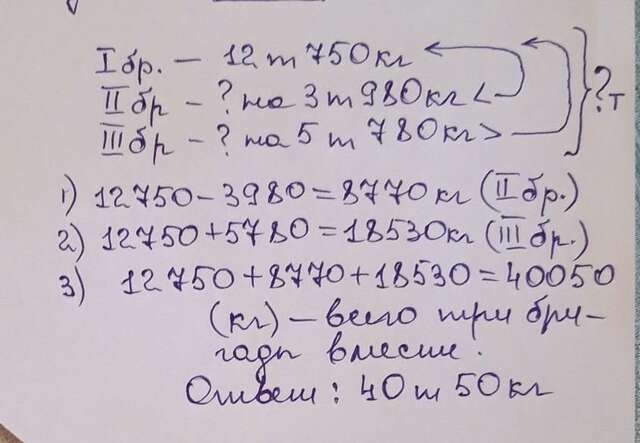 I бр. – 12 т 750 кг
II бр – ? на 3 т 980 кг <
III бр – ? на 5 т 780 кг >
? т
1) 12750 – 3980 = 8770 кг (II бр.)
2) 12750 + 5780 = 18530 кг (III бр.)
3) 12750 + 8770 + 18530 = 40050
(кг) – всего три бри-
гады вместе.
Ответ: 40 т 50 кг